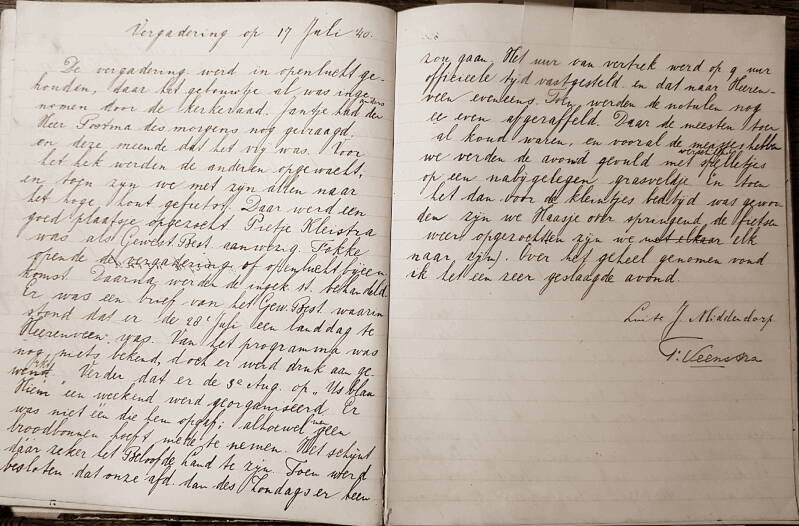 Vergadering op 17 Juli '40.
De vergadering werd in openlucht ge-
houden, daar het gebouwtje al was inge-
nomen door de kerkeraad. Jantje had den anderen
Heer Postma des morgens nog gevraagd
en deze meende dat het vrij was. Voor
het hek werden de anderen opgewacht,
en toen zijn we met zijn allen naar
het hoge hout gefietst. Daar werd een
goed plaatsje opgezocht. Pietje Kleistra
was als Gewest. Best. aanwezig. Fokke
opende de vergadering of openluchtbijeen
komst. Daarna werden de ingek. st. behandeld.
Er was een brief van het Gew. Best. waarin
stond dat er de 28e Juli een landdag te
Heerenveen was. Van het programma was
nog niets bekend, doch er werd druk aan ge-
werkt. Verder dat er de 3e Aug. op "Us blau
Hiem" een weekend werd georganiseerd. Er
was niet één die hem opgaf; alhoewel men geen
broodbonnen hoeft mede te nemen. Het schijnt
dáár zeker het Beloofde Land te zijn. Toen werd
besloten dat onze afd. dan des Zondags er heen
zou gaan. Het uur van vertrek werd op 9 uur
officieele tijd vastgesteld en dat naar Heeren-
veen eveneens. Toen werden de notulen nog
ee even afgeraffeld. Daar de meesten toen
al koud waren, en vooral de meesjes hebben
we verden de avond gevuld met verschillende spelletjes
op een nabijgelegen grasveldje. En toen
het dan voor de kleintjes bedtijd was gewor
den zijn we Haasje over springend, de fietsen
weer opgezochten zijn we met elkaar elk
naar zijn). Over het geheel genomen vond
ik het een zeer geslaagde avond.
J. Middendorp
T. Veenstra